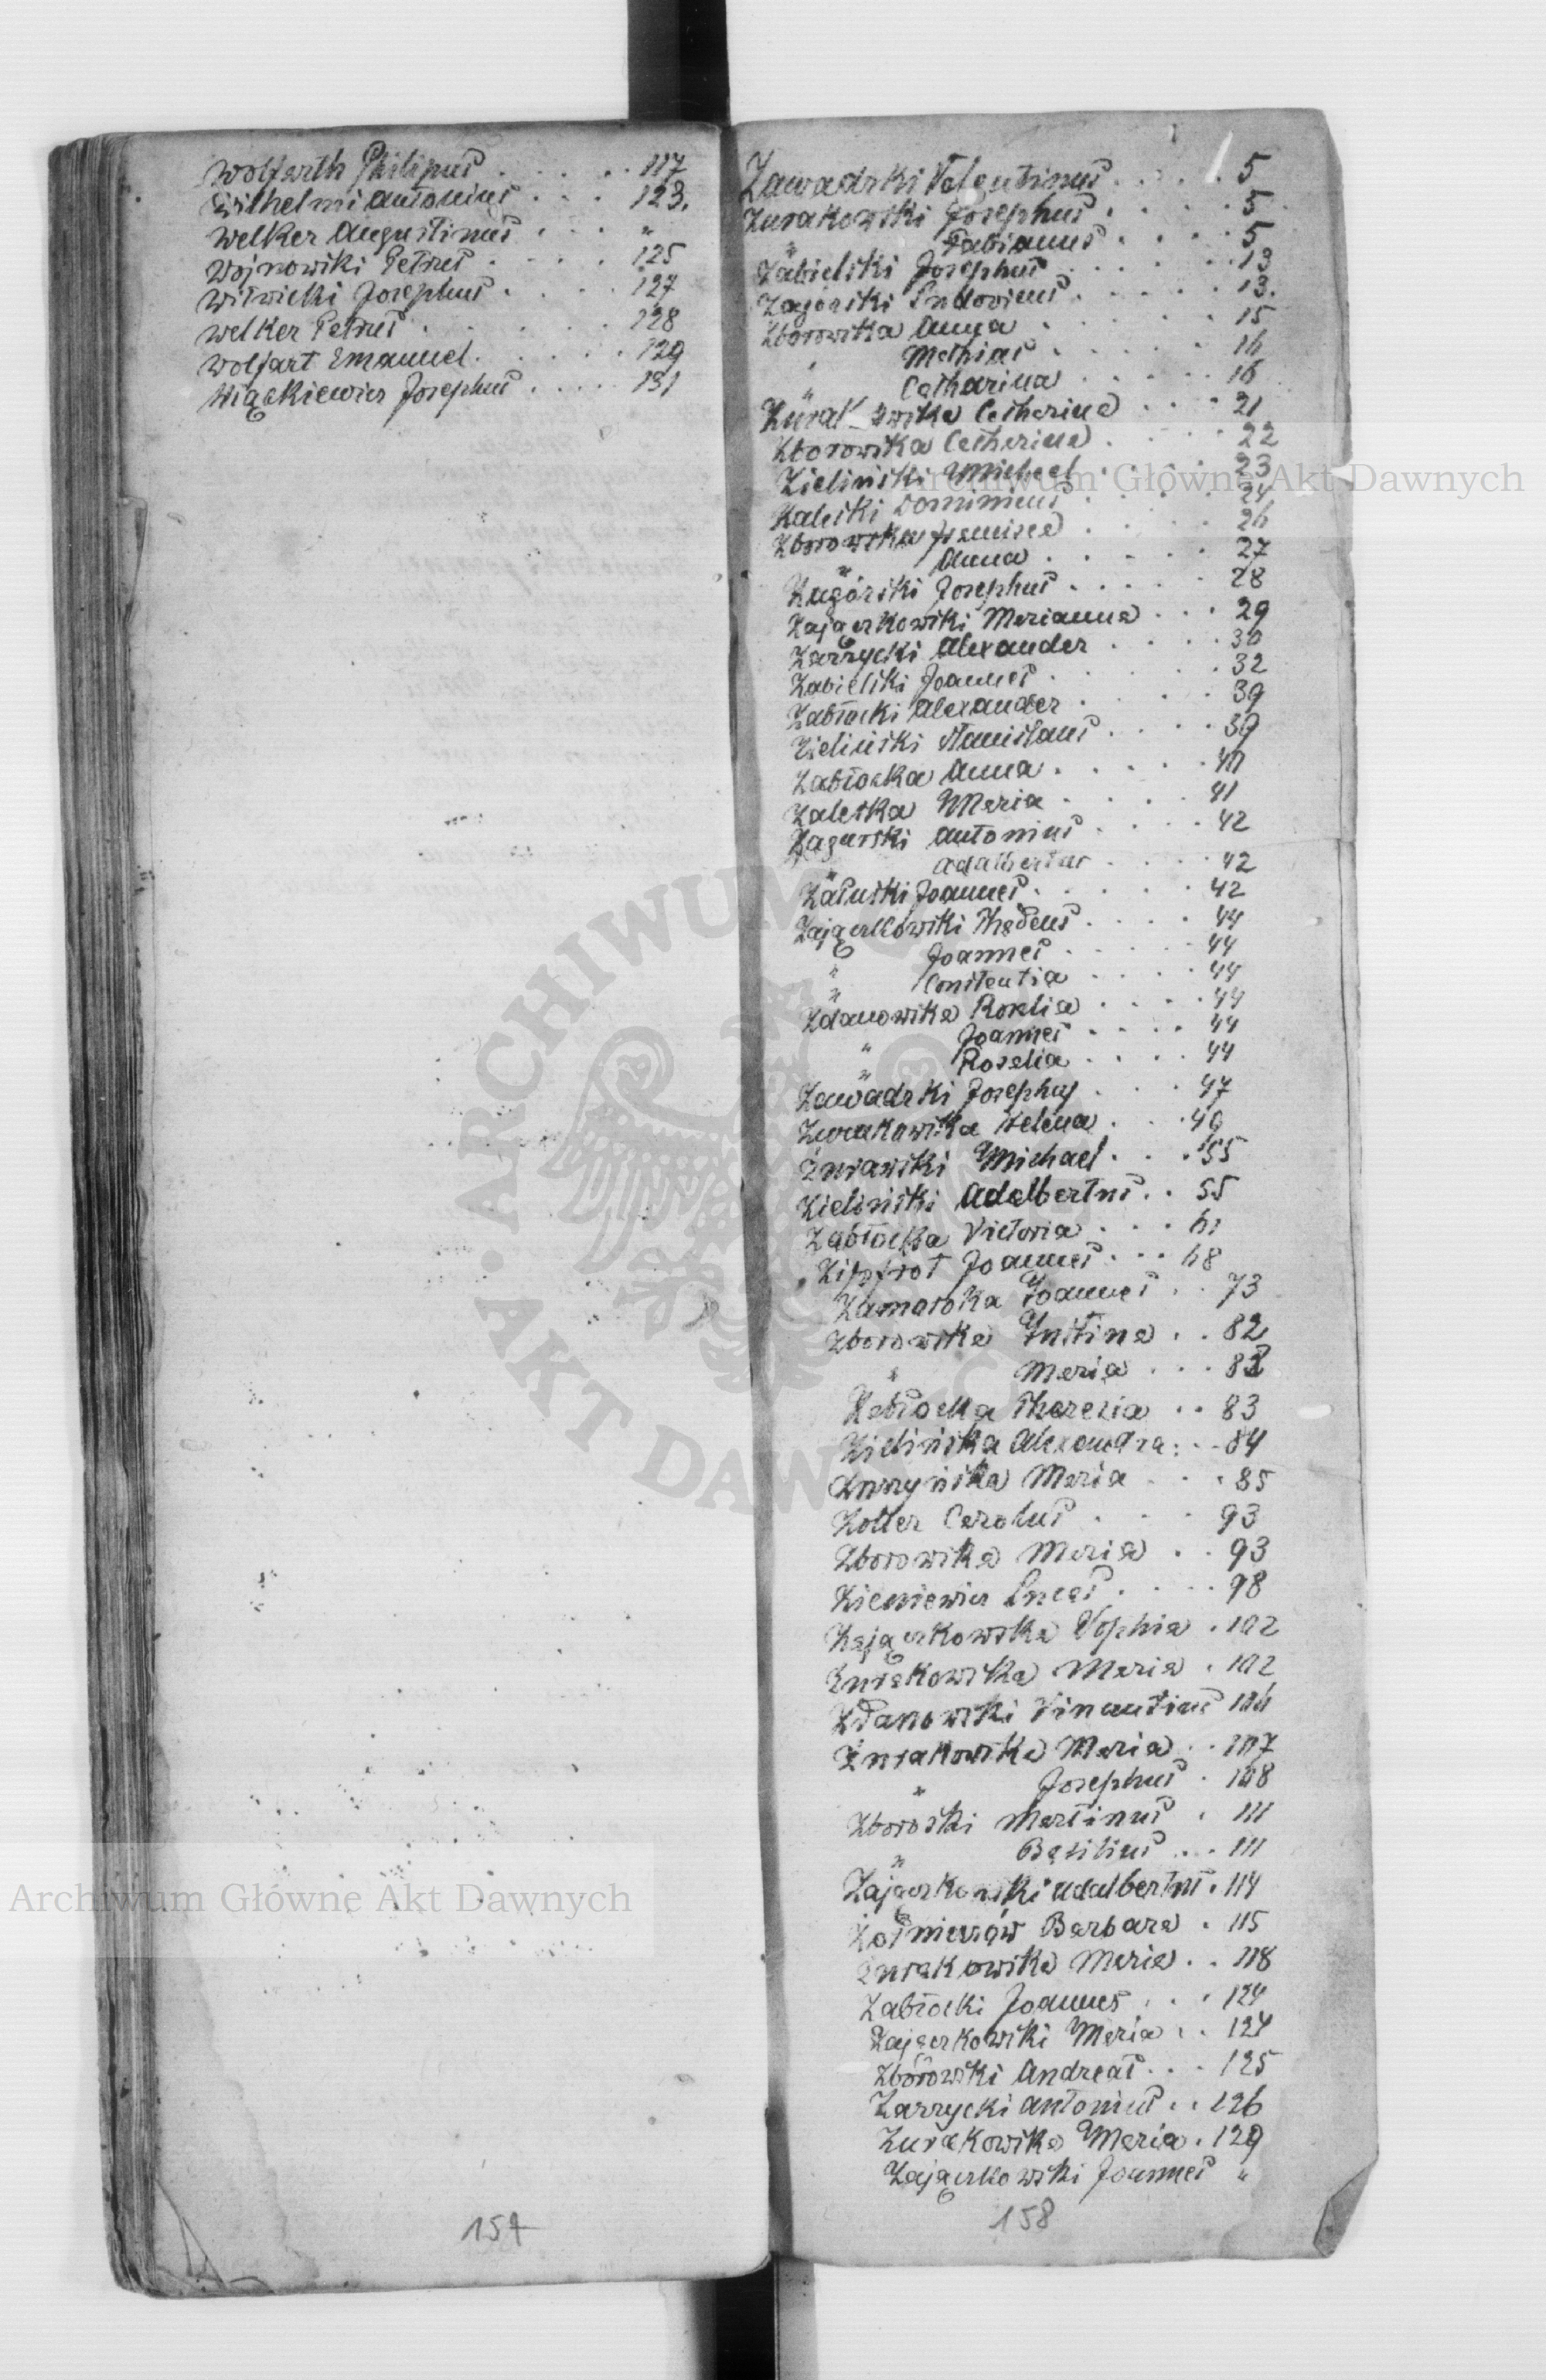 Wolfarth Philipus . . . . . 117
Wilhelmi Antonius . . . 123.
Welker Augustinus . . . "
Wojnowski Petrus . . . . 125
Witwicki Josephus . . . . 127
Welker Petrus . . . . . 128
Wolfart Emanuel . . . . . 129
Więckiewicz Josephus . . . . 131
154
Zawadzki Valentinus . . . . . 5
Zurakowski Josephus . . . . . 5
" Fabianus . . . . 5
Zabielski Josephus . . . . . 13
Zagórski Ludovicus . . . . . 13.
Zborowska Anna . . . . . 15
" Mathias . . . . . 16
" Catharina . . . . . 16
Zurakowska Catharina . . . 21
Zborowska Catharina . . . . 22
Zieliński Michael . . . . 23
Zaleski Dominicus . . . . 24
Zborowska Francisca . . . . 26
" Anna . . . . . 27
Zagórski Josephus . . . . . 28
Zajączkowski Marianna . . . 29
Zarzycki Alexander . . . . 30
Zabielski Joannes . . . . . 32
Zabłocki Alexander . . . . 39
Zieliński Stanislaus . . . . 39
Zabłocka Anna . . . . . 40
Zaleska Maria . . . . 41
Zagurski Antonius . . . . 42
" Adalbertus . . . . 42
Załuski Joannes . . . . . 42
Zajączkowski Thadeus . . . . 44
" Joannes . . . . . 44
" Constantia . . . . 44
Zdanowska Rosalia . . . . 44
" Joannes . . . . 44
" Rosalia . . . . 44
Zawadzki Josephus . . . 47
Zurakowska Helena . . . 49
Żurawski Michael . . . 55
Zieliński Adalbertus . . 55
Zabłocka Victoria . . . 61
Zipfrot Joannes . . . 68
Zamaroka Joannes . . 73
Zborowska Justina . . 82
" Maria . . . 82
Zabłocka Theresia . . 83
Zielińska Alexandra . . . 84
Zurzyńska Maria . . . 85
Zoller Carolus . . . 93
Zborowska Maria . . 93
Zieniewicz Lucas . . . . 98
Zajączkowska Sophia . 102
Żurakowska Maria . 102
Zdanowski Vincentius 104
Żurakowska Maria . . 107
" Josephus . 108
Zboroski Martinus . 111
" Basilius . . . 111
Zajączkowski Adalbertus . 114
Żołnierzów Barbara . 115
Żurakowska Maria . . 118
Zabłocki Joannes . . . 124
Zajączkowski Maria . . 124
Zborowski Andreas . . . 125
Zarzycki Antonius . . 126
Zurakowska Maria . 129
Zajączkowski Joannes "
158
Archiwum Główne Akt Dawnych
Archiwum Główne Akt Dawnych